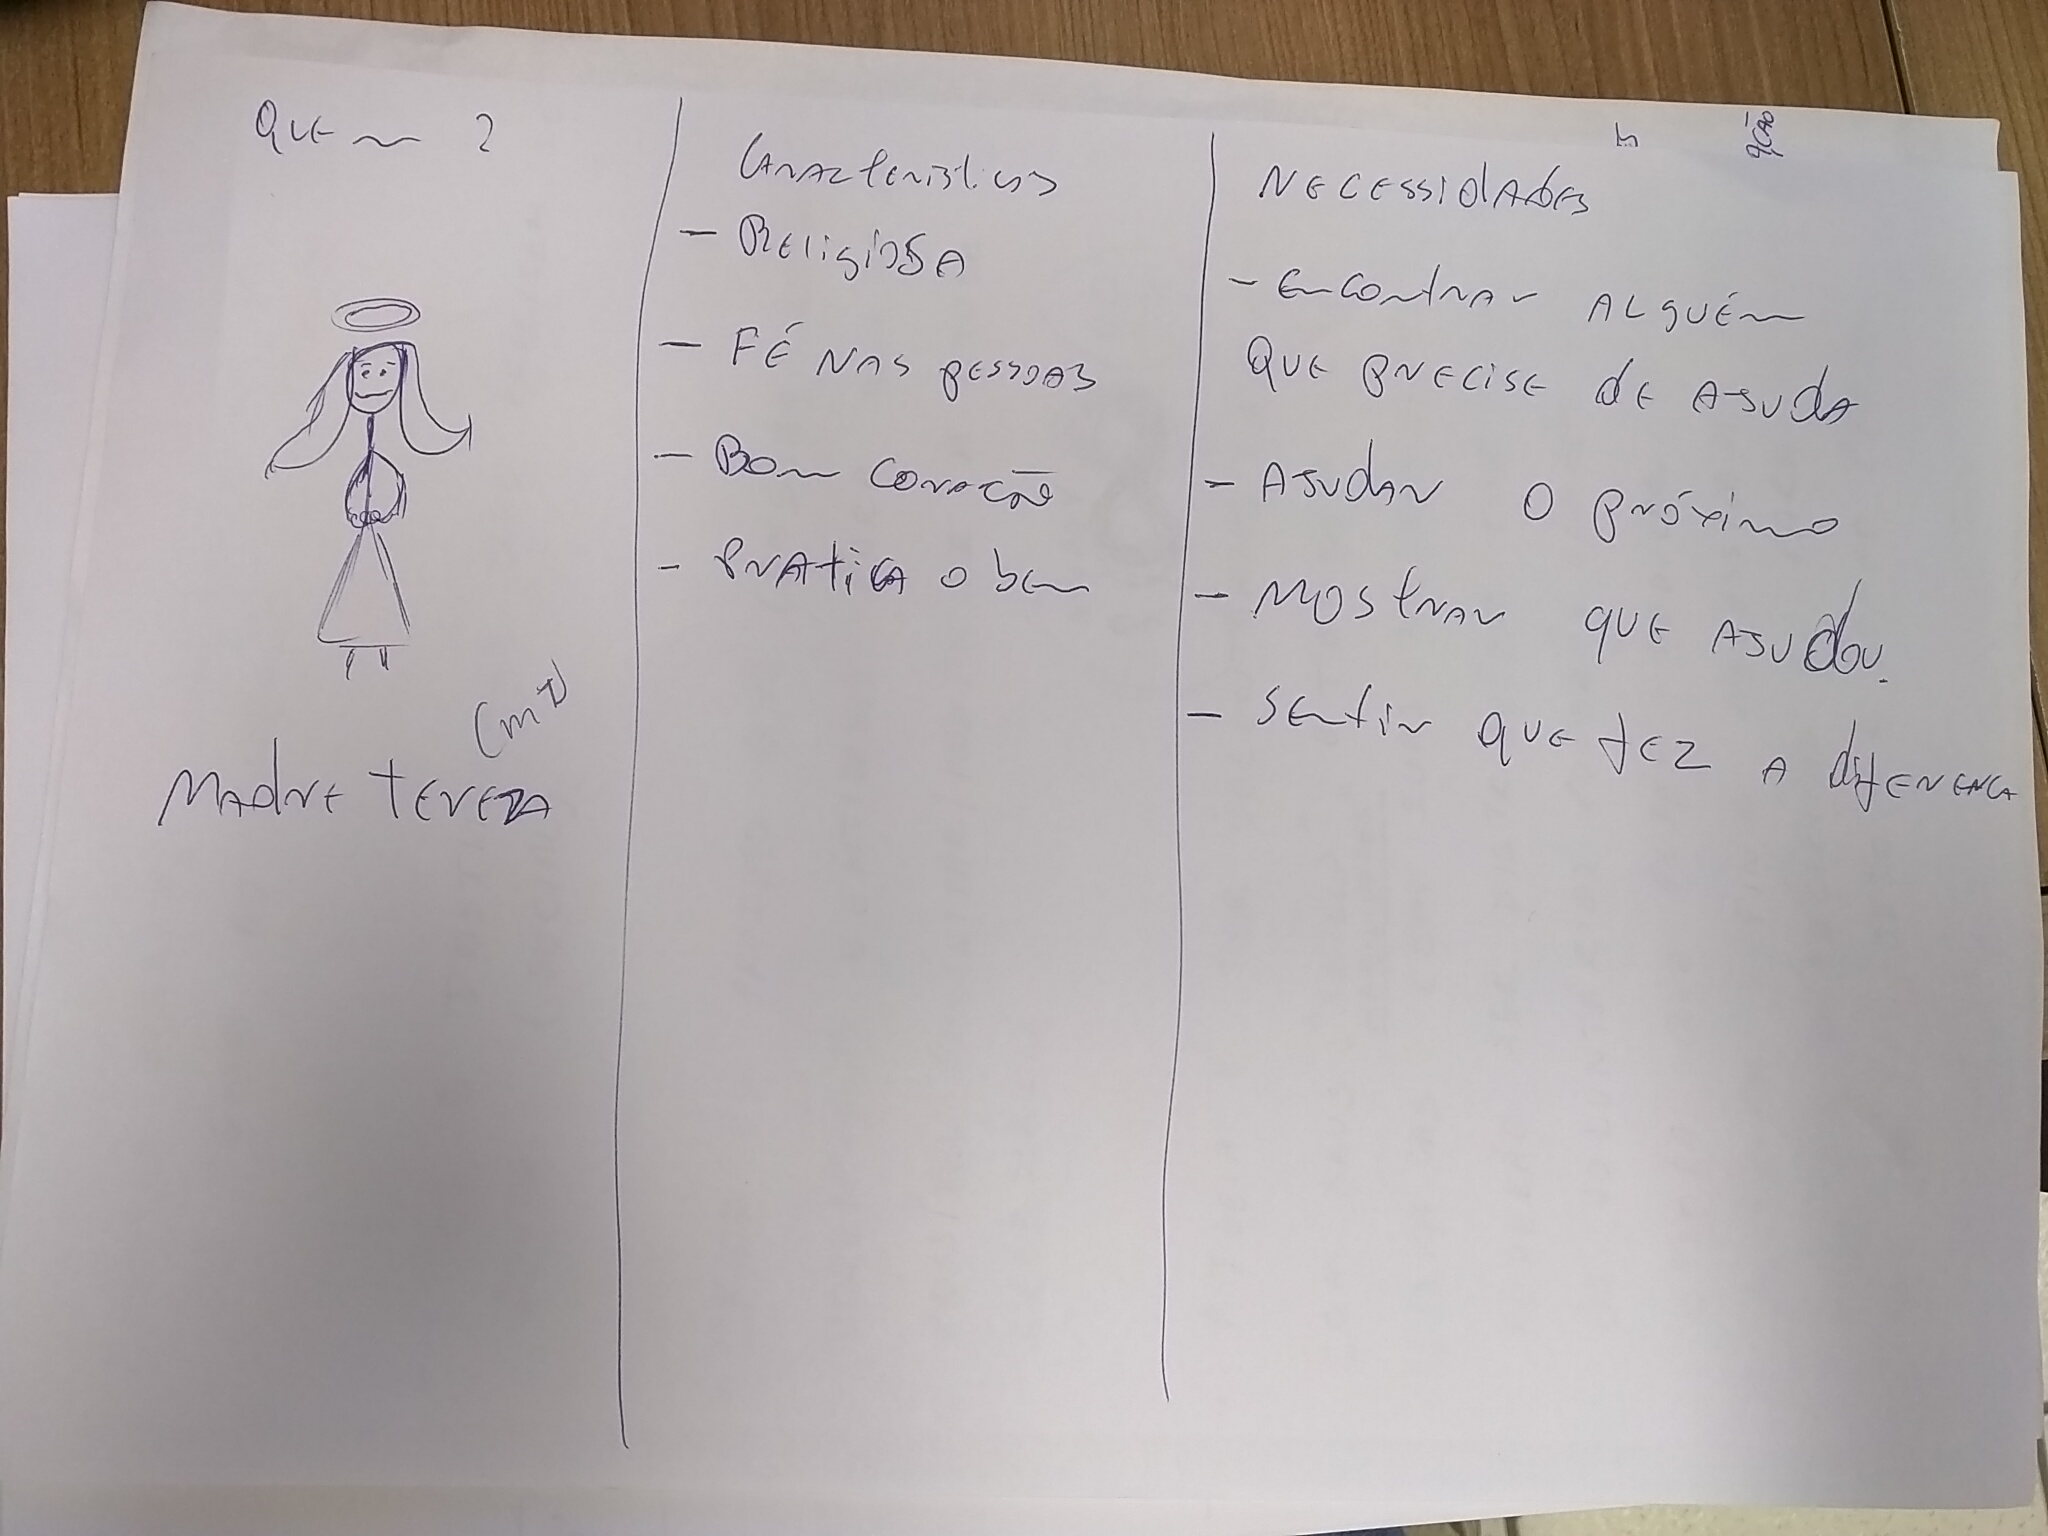 Quem ?
Madre Tereza
Características
- Religiosa
- Fé nas pessoas
- Bom coração
- Pratica o bem
Necessidades
- Encontrar alguém
que precise de ajuda
- Ajudar o próximo
- Mostrar que ajudou.
- Sentir que fez a diferença
ção